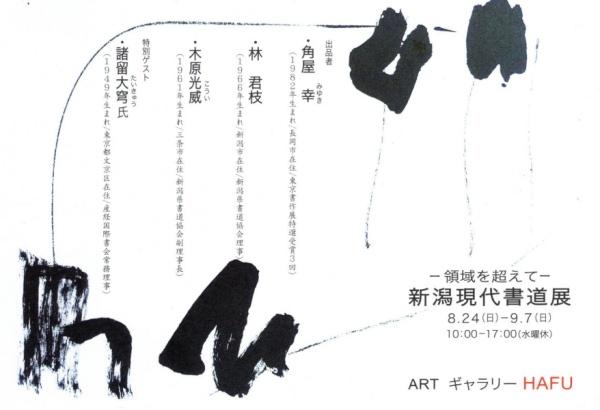 出品者
・角屋 幸 みゆき
(1982年生まれ/長岡市在住/東京書作展特選受賞3回)
・林 君枝
(1966年生まれ/新潟市在住/新潟県書道協会理事)
・木原光威 こうい
(1961年生まれ/三条市在住/新潟県書道協会副理事長)
特別ゲスト
・諸留大穹氏 たいきゅう
(1949年生まれ/東京都文京区在住/産経国際書会常務理事)
−領域を超えて−
新潟現代書道展
8.24(日)−9.7(日)
10:00−17:00(水曜休)
ART ギャラリー HAFU